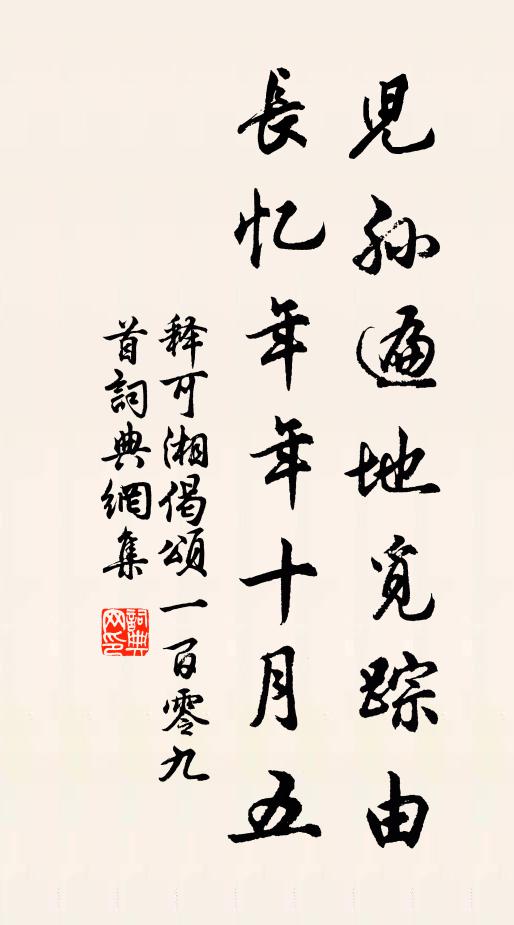 児孙遍地觅踪由
長忆年年十月五
释可湘偈頌一百零九
首詞典網集
詞典
网印